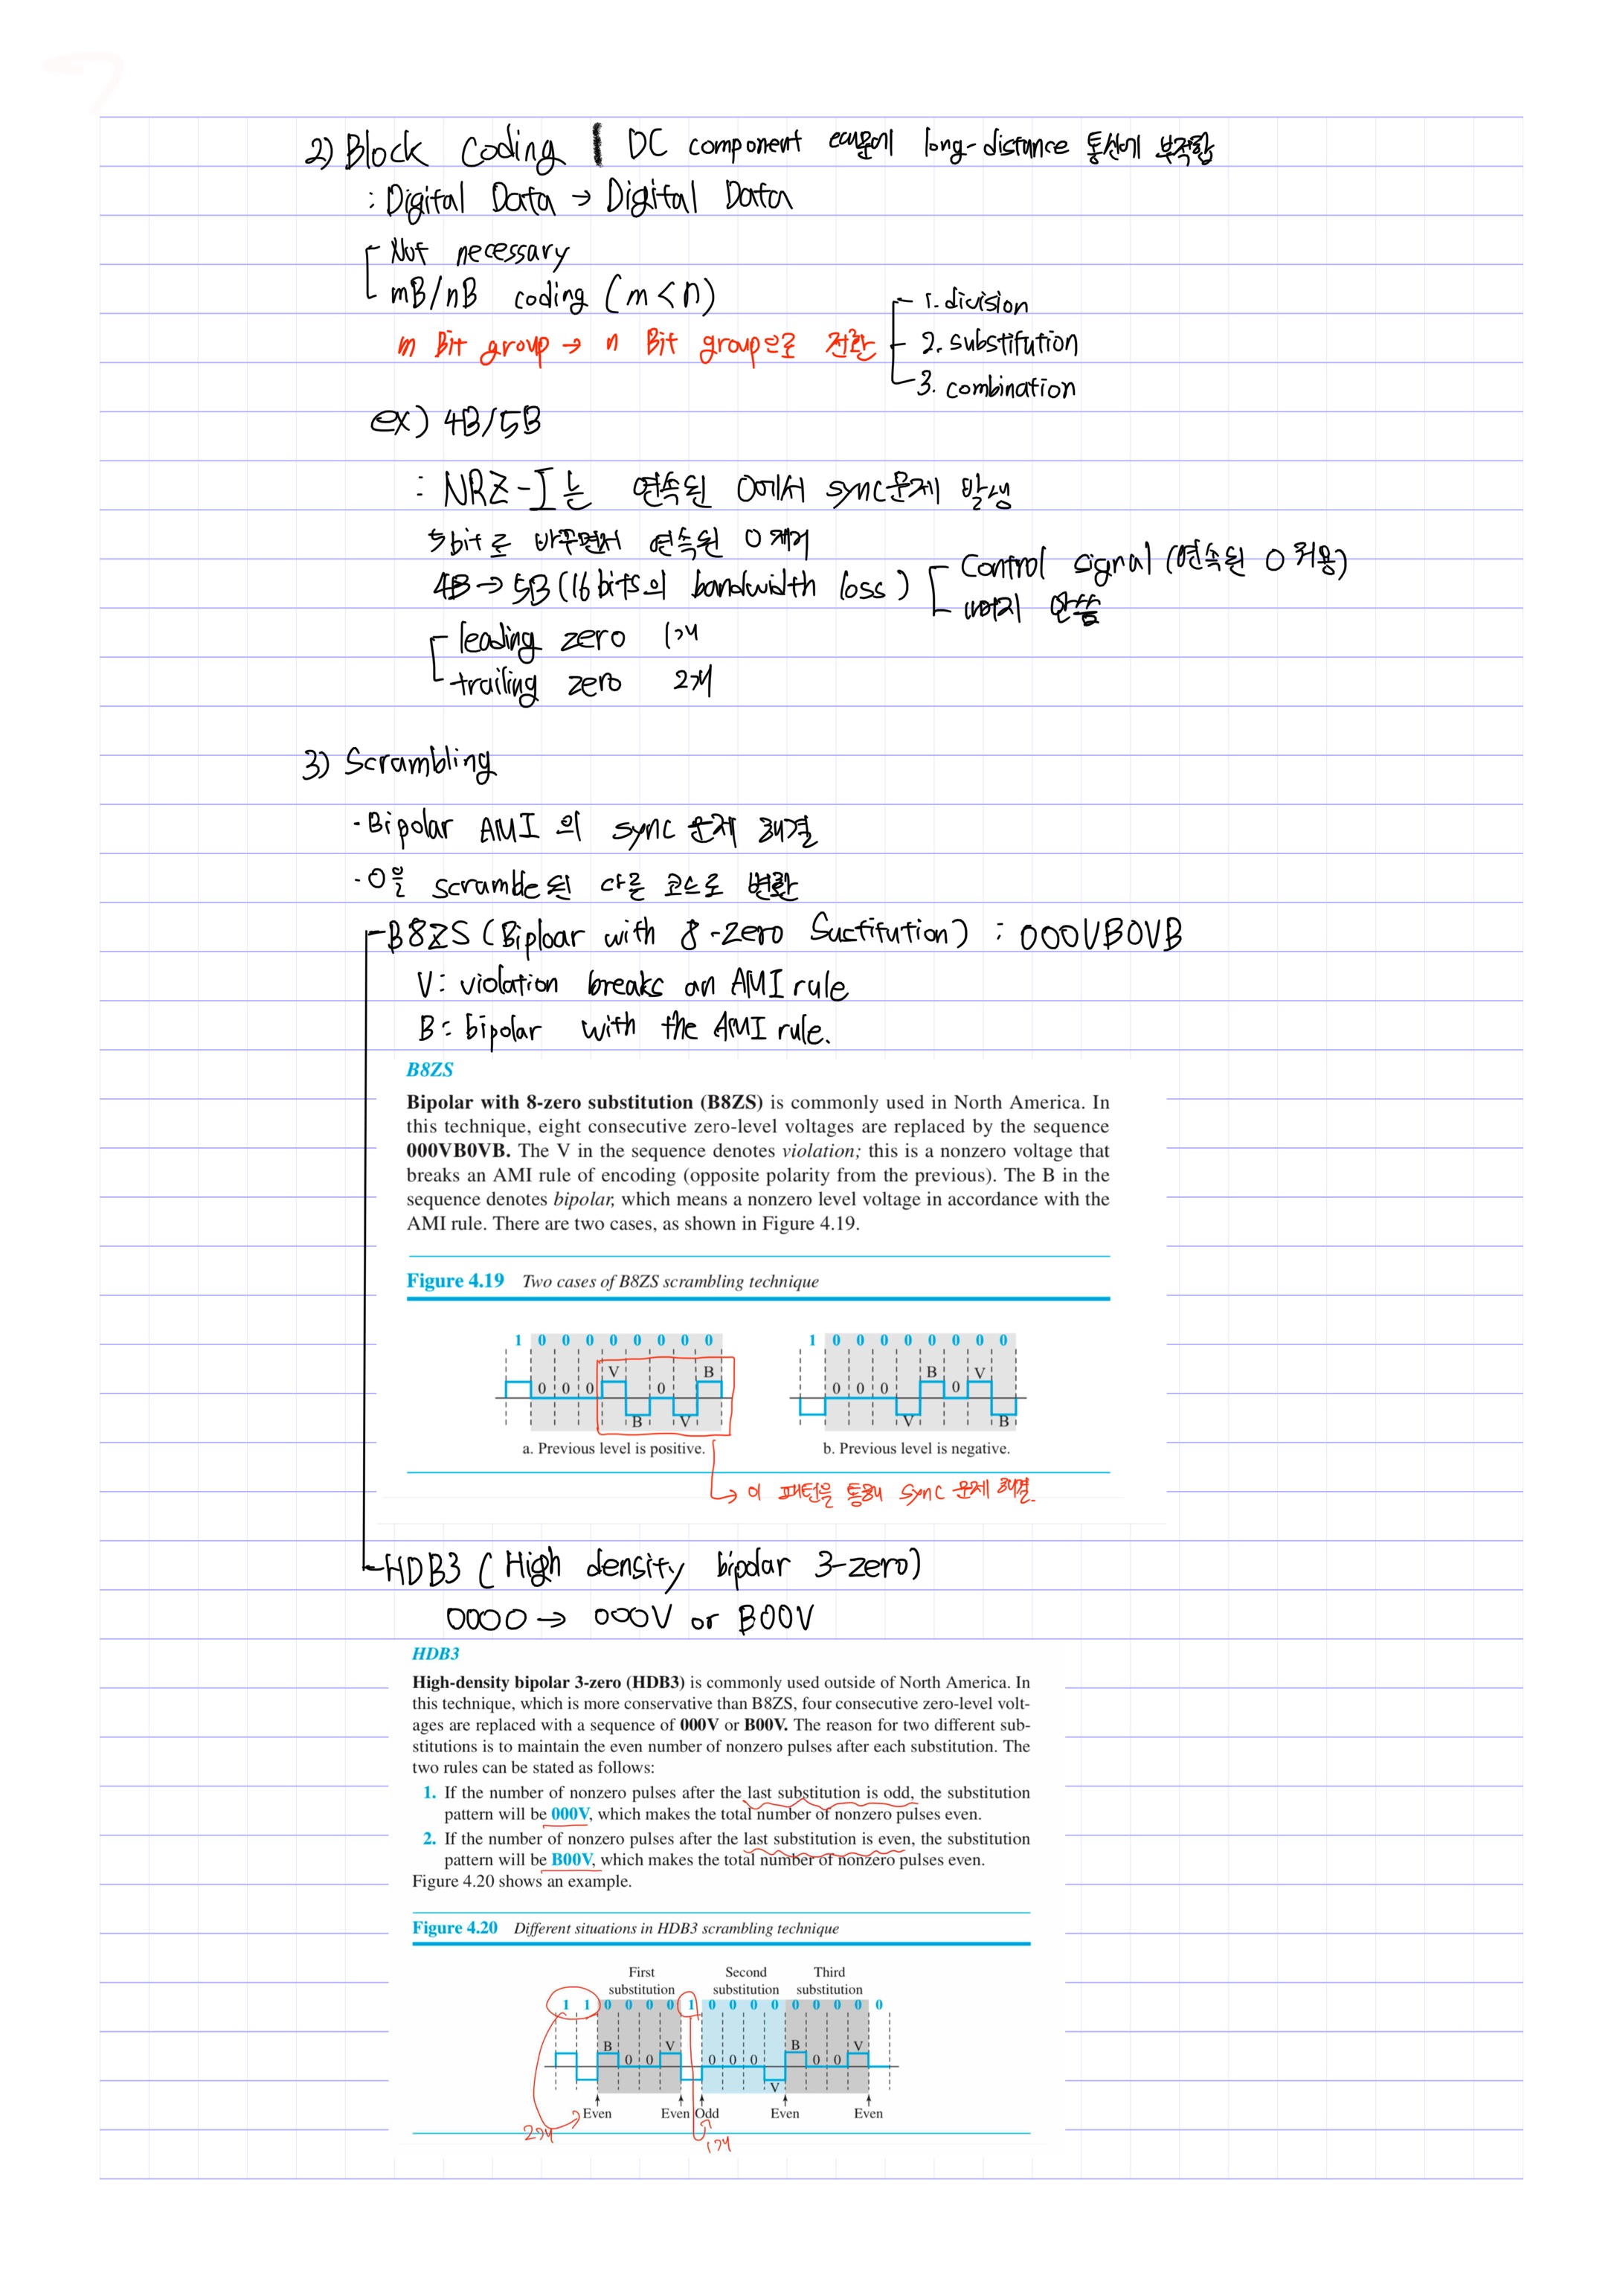 2) Block Coding | DC component 때문에 long-distance 통신에 부적합
: Digital Data → Digital Data
Not necessary
mB/nB coding (m<n)
m Bit group → n Bit group으로 전환
1. division
2. substitution
3. combination
ex) 4B/5B
: NRZ-I는 연속된 0에서 sync문제 발생
5bit로 바꾸면서 연속된 0 제거
4B→5B (16bits의 bandwidth loss)
Control signal (연속된 0 허용)
나머지 안씀
leading zero 1개
trailing zero 2개
3) Scrambling
· Bipolar AMI의 sync 문제 해결
· 0을 scramble된 다른 코드로 변환
B8ZS (Biploar with 8-zero Suctitution) : 000VB0VB
V: violation breaks an AMI rule
B: bipolar with the AMI rule.
B8ZS
Bipolar with 8-zero substitution (B8ZS) is commonly used in North America. In
this technique, eight consecutive zero-level voltages are replaced by the sequence
000VB0VB. The V in the sequence denotes violation; this is a nonzero voltage that
breaks an AMI rule of encoding (opposite polarity from the previous). The B in the
sequence denotes bipolar, which means a nonzero level voltage in accordance with the
AMI rule. There are two cases, as shown in Figure 4.19.
Figure 4.19 Two cases of B8ZS scrambling technique
1 0 0 0 0 0 0 0 0
0 0 0 V B 0 V B
a. Previous level is positive.
1 0 0 0 0 0 0 0 0
0 0 0 V B 0 V B
b. Previous level is negative.
→ 이 패턴을 통해 sync 문제 해결.
HDB3 (High density bipolar 3-zero)
0000 → 000V or B00V
HDB3
High-density bipolar 3-zero (HDB3) is commonly used outside of North America. In
this technique, which is more conservative than B8ZS, four consecutive zero-level volt-
ages are replaced with a sequence of 000V or B00V. The reason for two different sub-
stitutions is to maintain the even number of nonzero pulses after each substitution. The
two rules can be stated as follows:
1. If the number of nonzero pulses after the last substitution is odd, the substitution
pattern will be 000V, which makes the total number of nonzero pulses even.
2. If the number of nonzero pulses after the last substitution is even, the substitution
pattern will be B00V, which makes the total number of nonzero pulses even.
Figure 4.20 shows an example.
Figure 4.20 Different situations in HDB3 scrambling technique
First substitution
Second substitution
Third substitution
1 1 0 0 0 0 1 0 0 0 0 0 0 0 0 0
B 0 0 V 0 0 0 V B 0 0 V
Even Even Odd Even Even
2개
1개